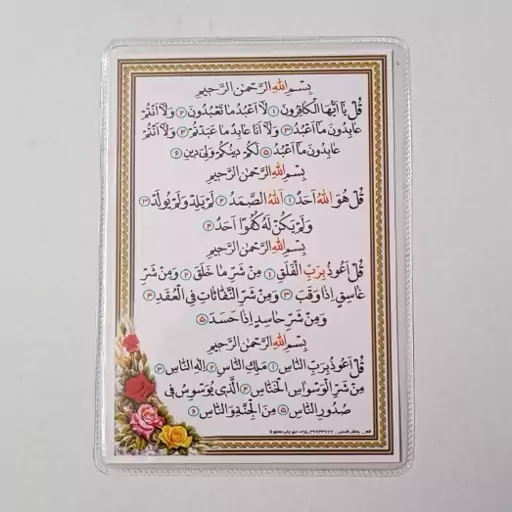 بِسْمِ اللهِ الرَّحْمٰنِ الرَّحِیمِ
قُلْ یَا اَیُّهَا الْکَافِرُونَ ۱ لَا اَعْبُدُ مَا تَعْبُدُونَ ۲ وَلَا اَنْتُمْ
عَابِدُونَ مَا اَعْبُدُ ۳ وَلَا اَنَا عَابِدٌ مَا عَبَدْتُمْ ۴ وَلَا اَنْتُمْ
عَابِدُونَ مَا اَعْبُدُ ۵ لَکُمْ دِینُکُمْ وَلِیَ دِینِ ۶
بِسْمِ اللهِ الرَّحْمٰنِ الرَّحِیمِ
قُلْ هُوَ اللهُ اَحَدٌ ۱ اَللهُ الصَّمَدُ ۲ لَمْ یَلِدْ وَلَمْ یُولَدْ ۳
وَلَمْ یَکُنْ لَهُ کُفُوًا اَحَدٌ ۴
بِسْمِ اللهِ الرَّحْمٰنِ الرَّحِیمِ
قُلْ اَعُوذُ بِرَبِّ الْفَلَقِ ۱ مِنْ شَرِّ مَا خَلَقَ ۲ وَمِنْ شَرِّ
غَاسِقٍ اِذَا وَقَبَ ۳ وَمِنْ شَرِّ النَّفَّاثَاتِ فِی الْعُقَدِ ۴
وَمِنْ شَرِّ حَاسِدٍ اِذَا حَسَدَ ۵
بِسْمِ اللهِ الرَّحْمٰنِ الرَّحِیمِ
قُلْ اَعُوذُ بِرَبِّ النَّاسِ ۱ مَلِکِ النَّاسِ ۲ اِلٰهِ النَّاسِ ۳
مِنْ شَرِّ الْوَسْوَاسِ الْخَنَّاسِ ۴ اَلَّذِی یُوَسْوِسُ فِی
صُدُورِ النَّاسِ ۵ مِنَ الْجِنَّةِ وَالنَّاسِ ۶